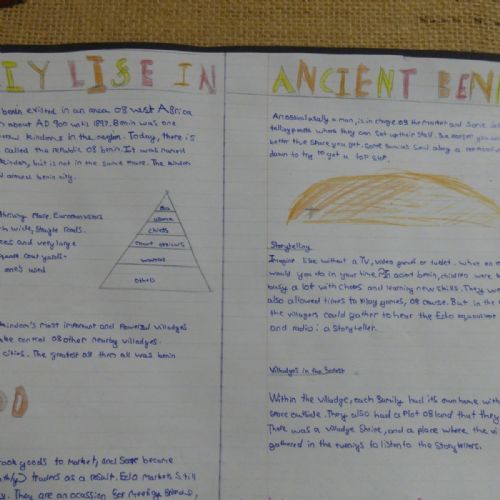 ILY LISE IN
benin existed in an area of west Africa
about AD 900 until 1897. Benin was one
kindoms in the region. Today, there is
called the republic of benin. It was named
kindom, but is not in the same place. The kindom
around benin city.
thriving place. European visitors
wide, straight roads.
and very large
court yards-
ones used
Oba
uzama
chiefs
court officials
workers
others
kindom's most important and powerful villadges
the control of other nearby villadges.
cities. The greatest of them all was benin
OD
took goods to market, and some became
traders as a result. Edo markets still
They are an occassion for meeting friends,
ANCIENT BEN
An official usally a man, is in charge of the market and
telling people where they can set up their stall. The earlier you
better the share you get. Some familes send along a
down to try to get a top spot.
Storytelling
Imagine life without a TV, video games or tablet. What on
would you do in your time? In acent benin, children were
busy a lot with chores and learning new skills. They we
also allowed times to play games, of course. But in the
the villagers could gather to hear the Edo equivalent
and radio: a storyteller.
Villadges in the forest
Within the villadge, each family had its own home with
space outside. They also had a plot of land that they
There was a villadge shrine, and a place where the vi
gathered in the evenigs to listen to the storytellers.